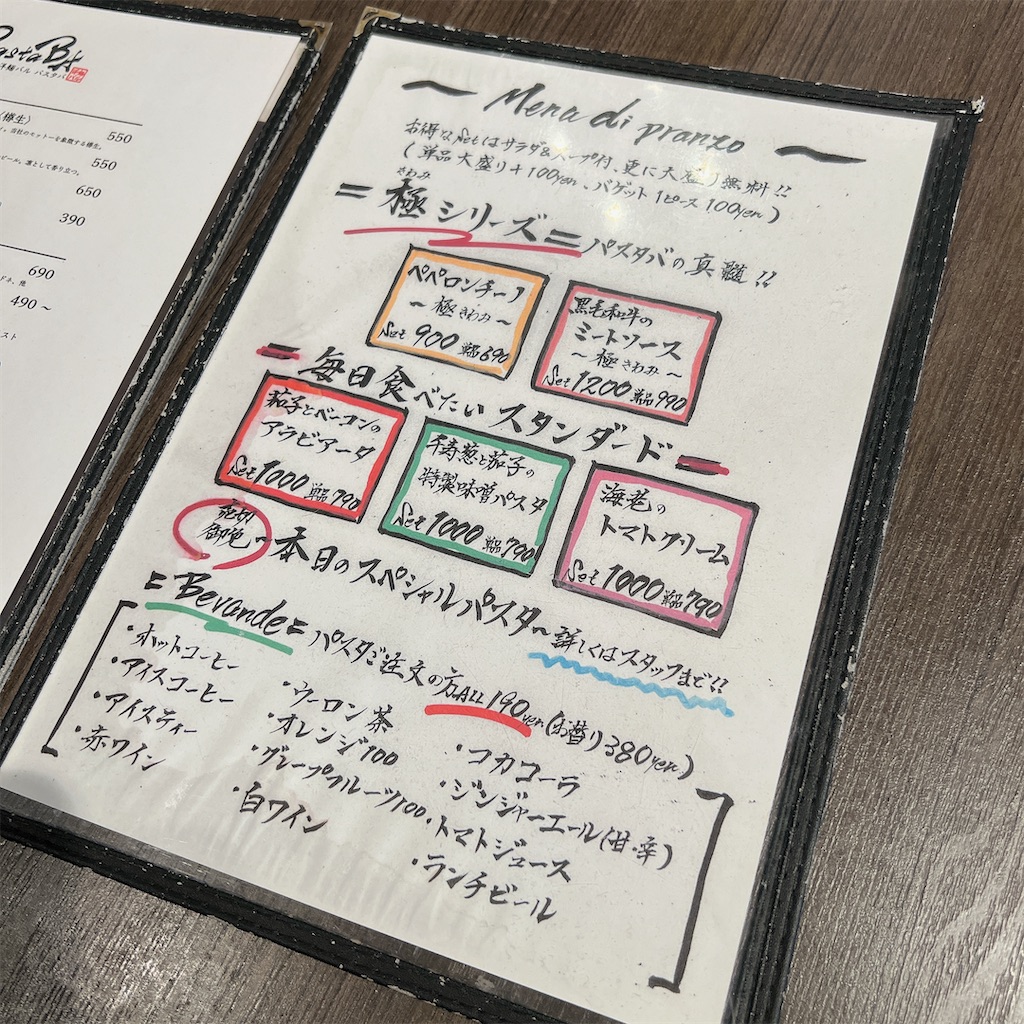 PastaBA
550
550
650
390
690
490 ~
~ Menu di pranzo ~
お得なSetはサラダ&スープ付、更に大盛り無料!!
(単品大盛り+100yen、バゲット1ピース100yen)
さわみ
=極シリーズ= パスタバの真髄!!
ペペロンチーノ
~極きわみ~
Set 900 単品690
黒毛和牛の
ミートソース
~極きわみ~
Set 1200 単品990
=毎日食べたいスタンダード=
茄子とベーコンの
アラビアータ
Set 1000 単品790
千寿葱と茄子の
特製味噌パスタ
Set 1000 単品790
海老の
トマトクリーム
Set 1000 単品790
売切
御免
~本日のスペシャルパスタ~ 詳しくはスタッフまで!!
=Bevande= パスタご注文の方ALL190yen(お替り380yen)
・ホットコーヒー
・アイスコーヒー
・アイスティー
・赤ワイン
・ウーロン茶
・オレンジ100
・グレープフルーツ100
・白ワイン
・コカコーラ
・ジンジャーエール(甘・辛)
・トマトジュース
・ランチビール